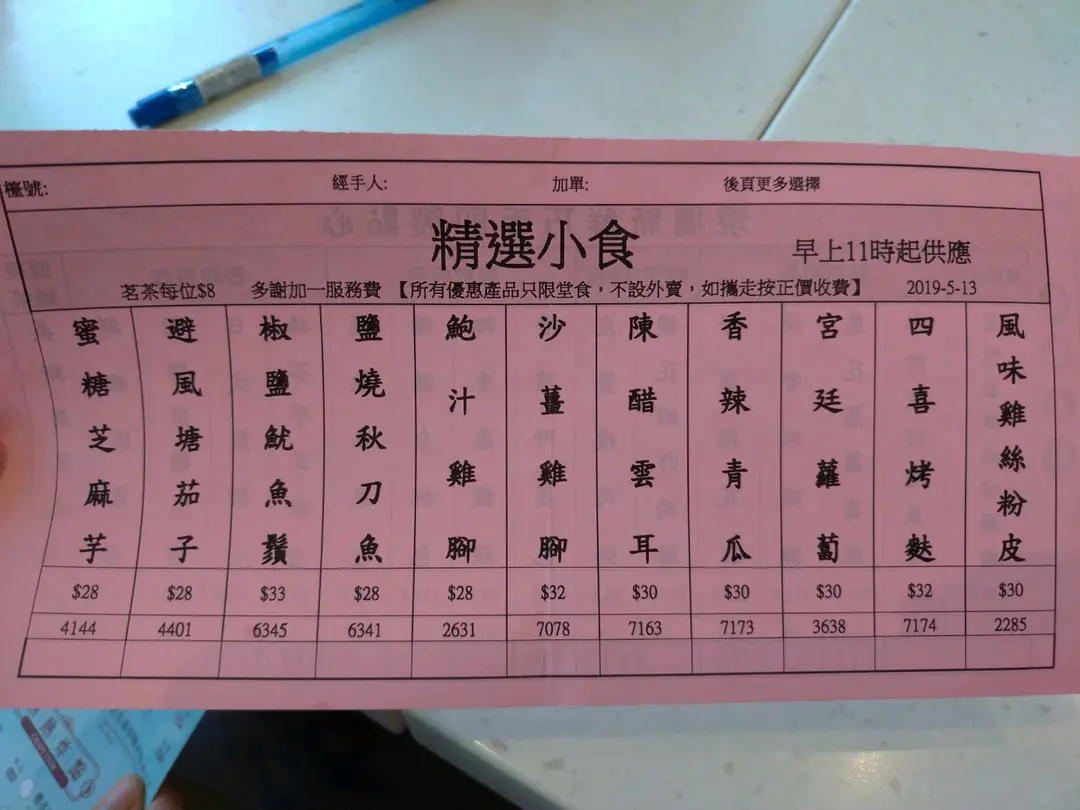 檯號: 經手人: 加單: 後頁更多選擇
精選小食 早上11時起供應
茗茶每位$8 多謝加一服務費 【所有優惠產品只限堂食，不設外賣，如攜走按正價收費】 2019-5-13
蜜糖芝麻芋 避風塘茄子 椒鹽魷魚鬚 鹽燒秋刀魚 鮑汁雞腳 沙薑雞腳 陳醋雲耳 香辣青瓜 宮廷蘿蔔 四喜烤麩 風味雞絲粉皮
$28 $28 $33 $28 $28 $32 $30 $30 $30 $32 $30
4144 4401 6345 6341 2631 7078 7163 7173 3638 7174 2285